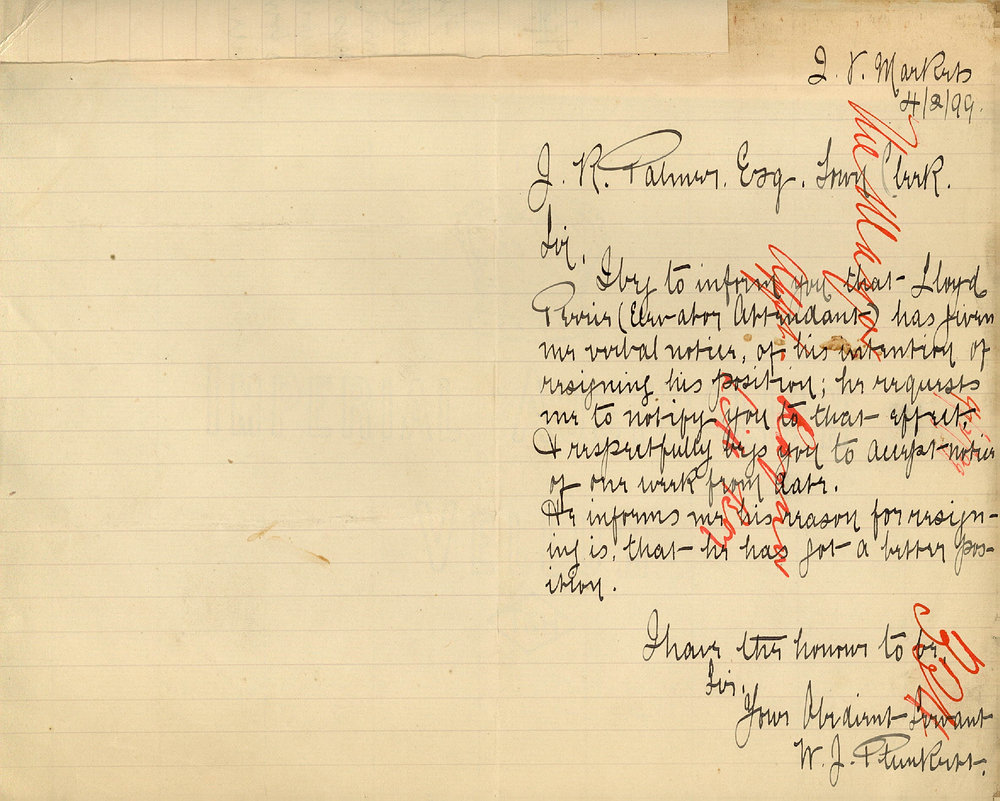 Q. V. Markets
4/2/99.
J. R. Palmer. Esq. Town Clerk.
Sir,
I beg to inform you that Lloyd
Perrie (Elevator Attendant) has given
me verbal notice, of his intention of
resigning his position; he requests
me to notify you to that effect,
& respectfully begs you to accept notice
of one week from date.
He informs me his reason for resign-
ing is, that he has got a better pos-
ition.
I have the honour to be,
Sir,
Your Obedient Servant
W. J. Plunkett.
The Mayor
lift boy